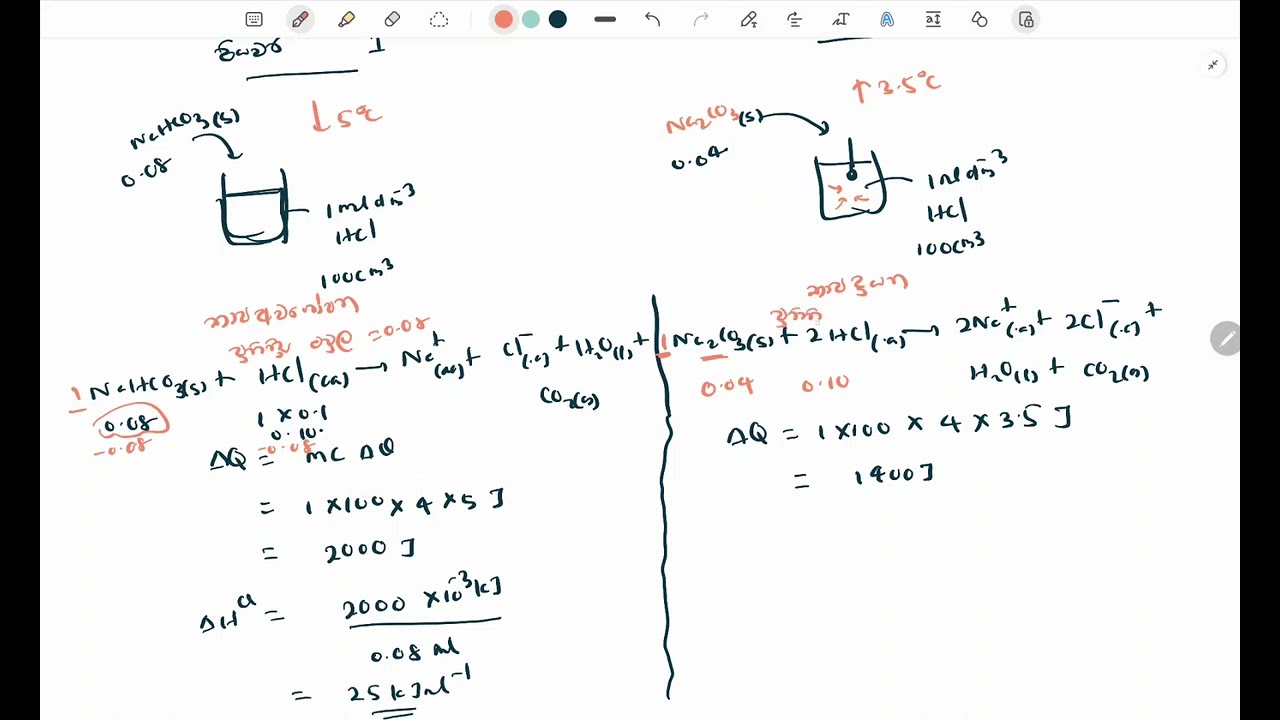 පියවර I
↓ 5°C
NaHCO3(s)
0.08
1 mol dm⁻³
HCl
100cm³
තාප අවශෝෂක
= 0.08
1 NaHCO3(s) + HCl(aq) → Na⁺(aq) + Cl⁻(aq) + H2O(l) +
CO2(g)
0.08
1 × 0.1
0.10
-0.08
-0.08
ΔQ = mc ΔQ
= 1 × 100 × 4 × 5 J
= 2000 J
ΔHᶿ = 2000 × 10⁻³ kJ
0.08 mol
= 25 kJmol⁻¹
↑ 3.5°C
Na2CO3(s)
0.04
1 mol dm⁻³
HCl
100cm³
තාප දායක
1 Na2CO3(s) + 2HCl(aq) → 2Na⁺(aq) + 2Cl⁻(aq) +
H2O(l) + CO2(g)
0.04 0.10
ΔQ = 1 × 100 × 4 × 3.5 J
= 1400 J